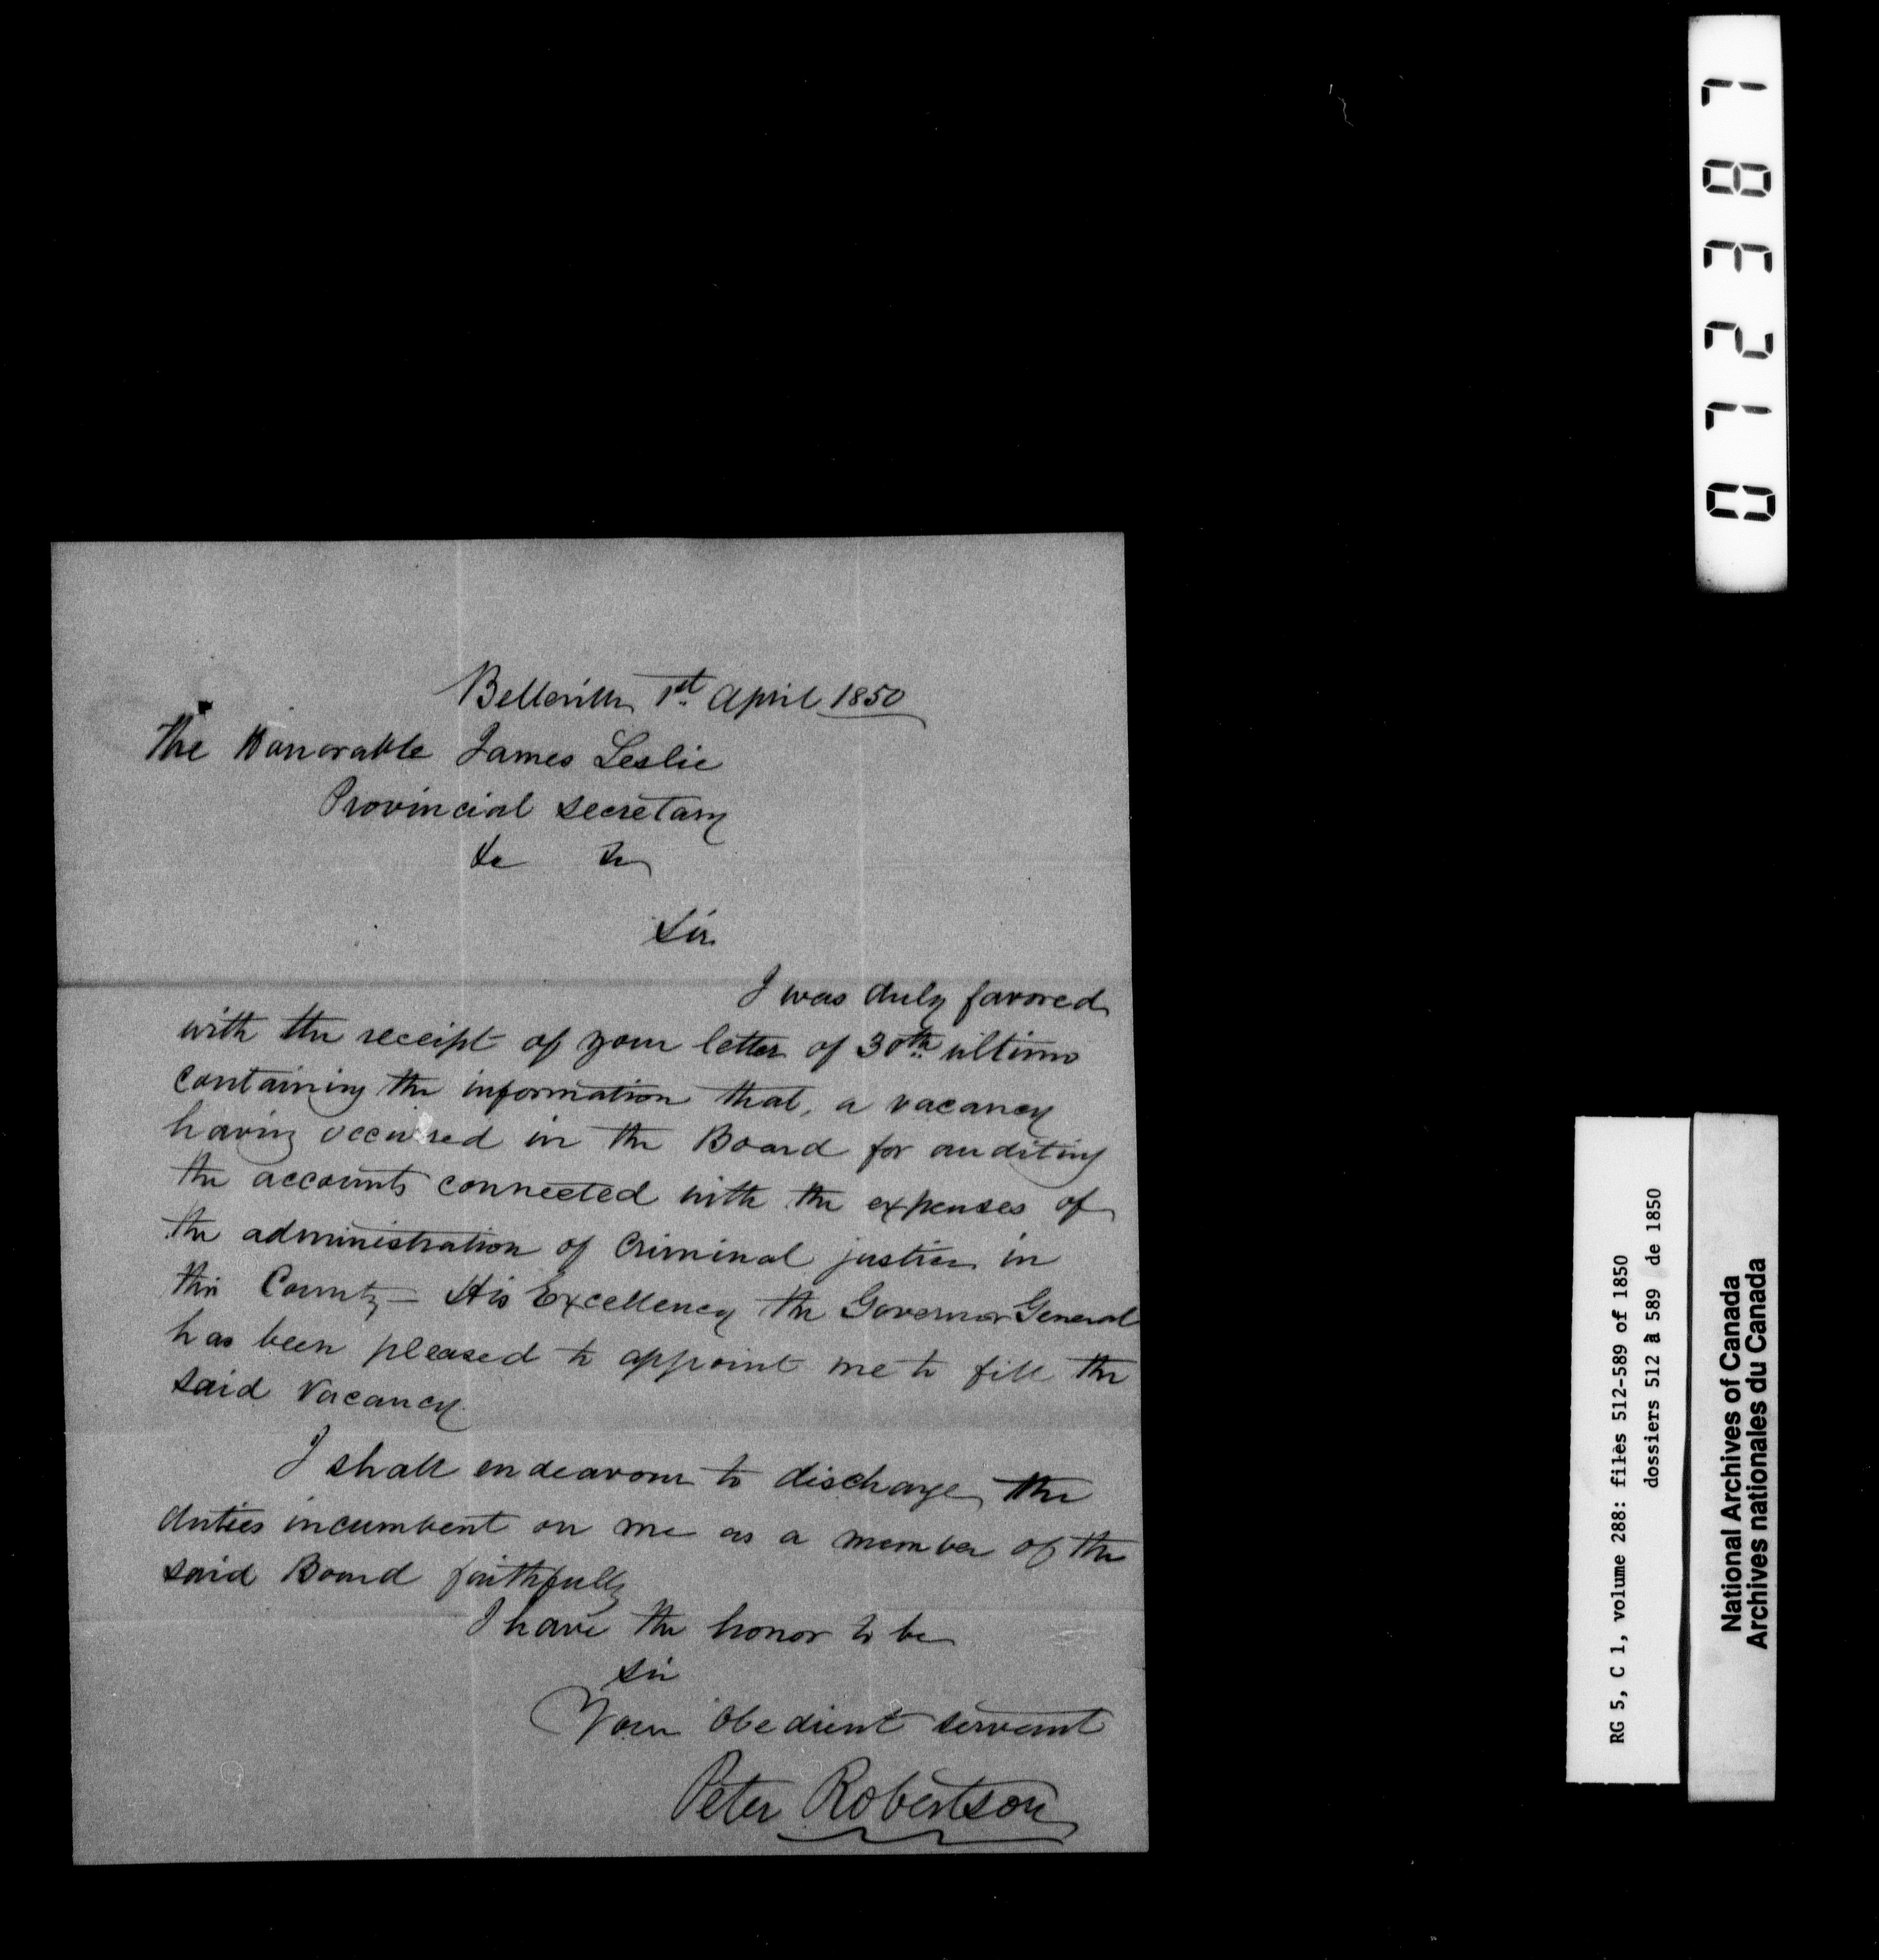 Belleville 1st April 1850
The Honorable James Leslie
Provincial Secretary
&c &c
Sir
I was duly favored
with the receipt of your letter of 30th ultimo
containing the information that, a vacancy
having occurred in the Board for auditing
the accounts connected with the expenses of
the administration of Criminal justice in
this County – His Excellency the Governor General
has been pleased to appoint me to fill the
said Vacancy.
I shall endeavour to discharge the
duties incumbent on me as a member of the
said Board faithfully
I have the honor to be
Sir
Your Obedient servant
Peter Robertson
072387
RG 5, C 1, volume 288: files 512-589 of 1850
dossiers 512 à 589 de 1850
National Archives of Canada
Archives nationales du Canada